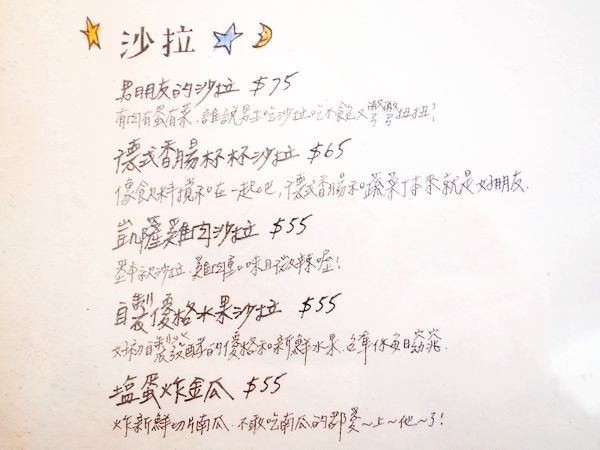 沙拉
男朋友的沙拉 $75
有肉有蛋有菜.誰說男生吃沙拉吃不飽又彆彆扭扭?
德式香腸杯杯沙拉 $65
像飲料攪和在一起吧,德式香腸和蔬菜丁本來就是好朋友.
凱薩雞肉沙拉 $55
基本款沙拉.雞肉重口味且微辣喔!
自製優格水果沙拉 $55
好初自製發酵的優格和新鮮水果.這筆保每日窈窕.
塩蛋炸金瓜 $55
炸新鮮切片南瓜.不敢吃南瓜的都愛~上~他~了!